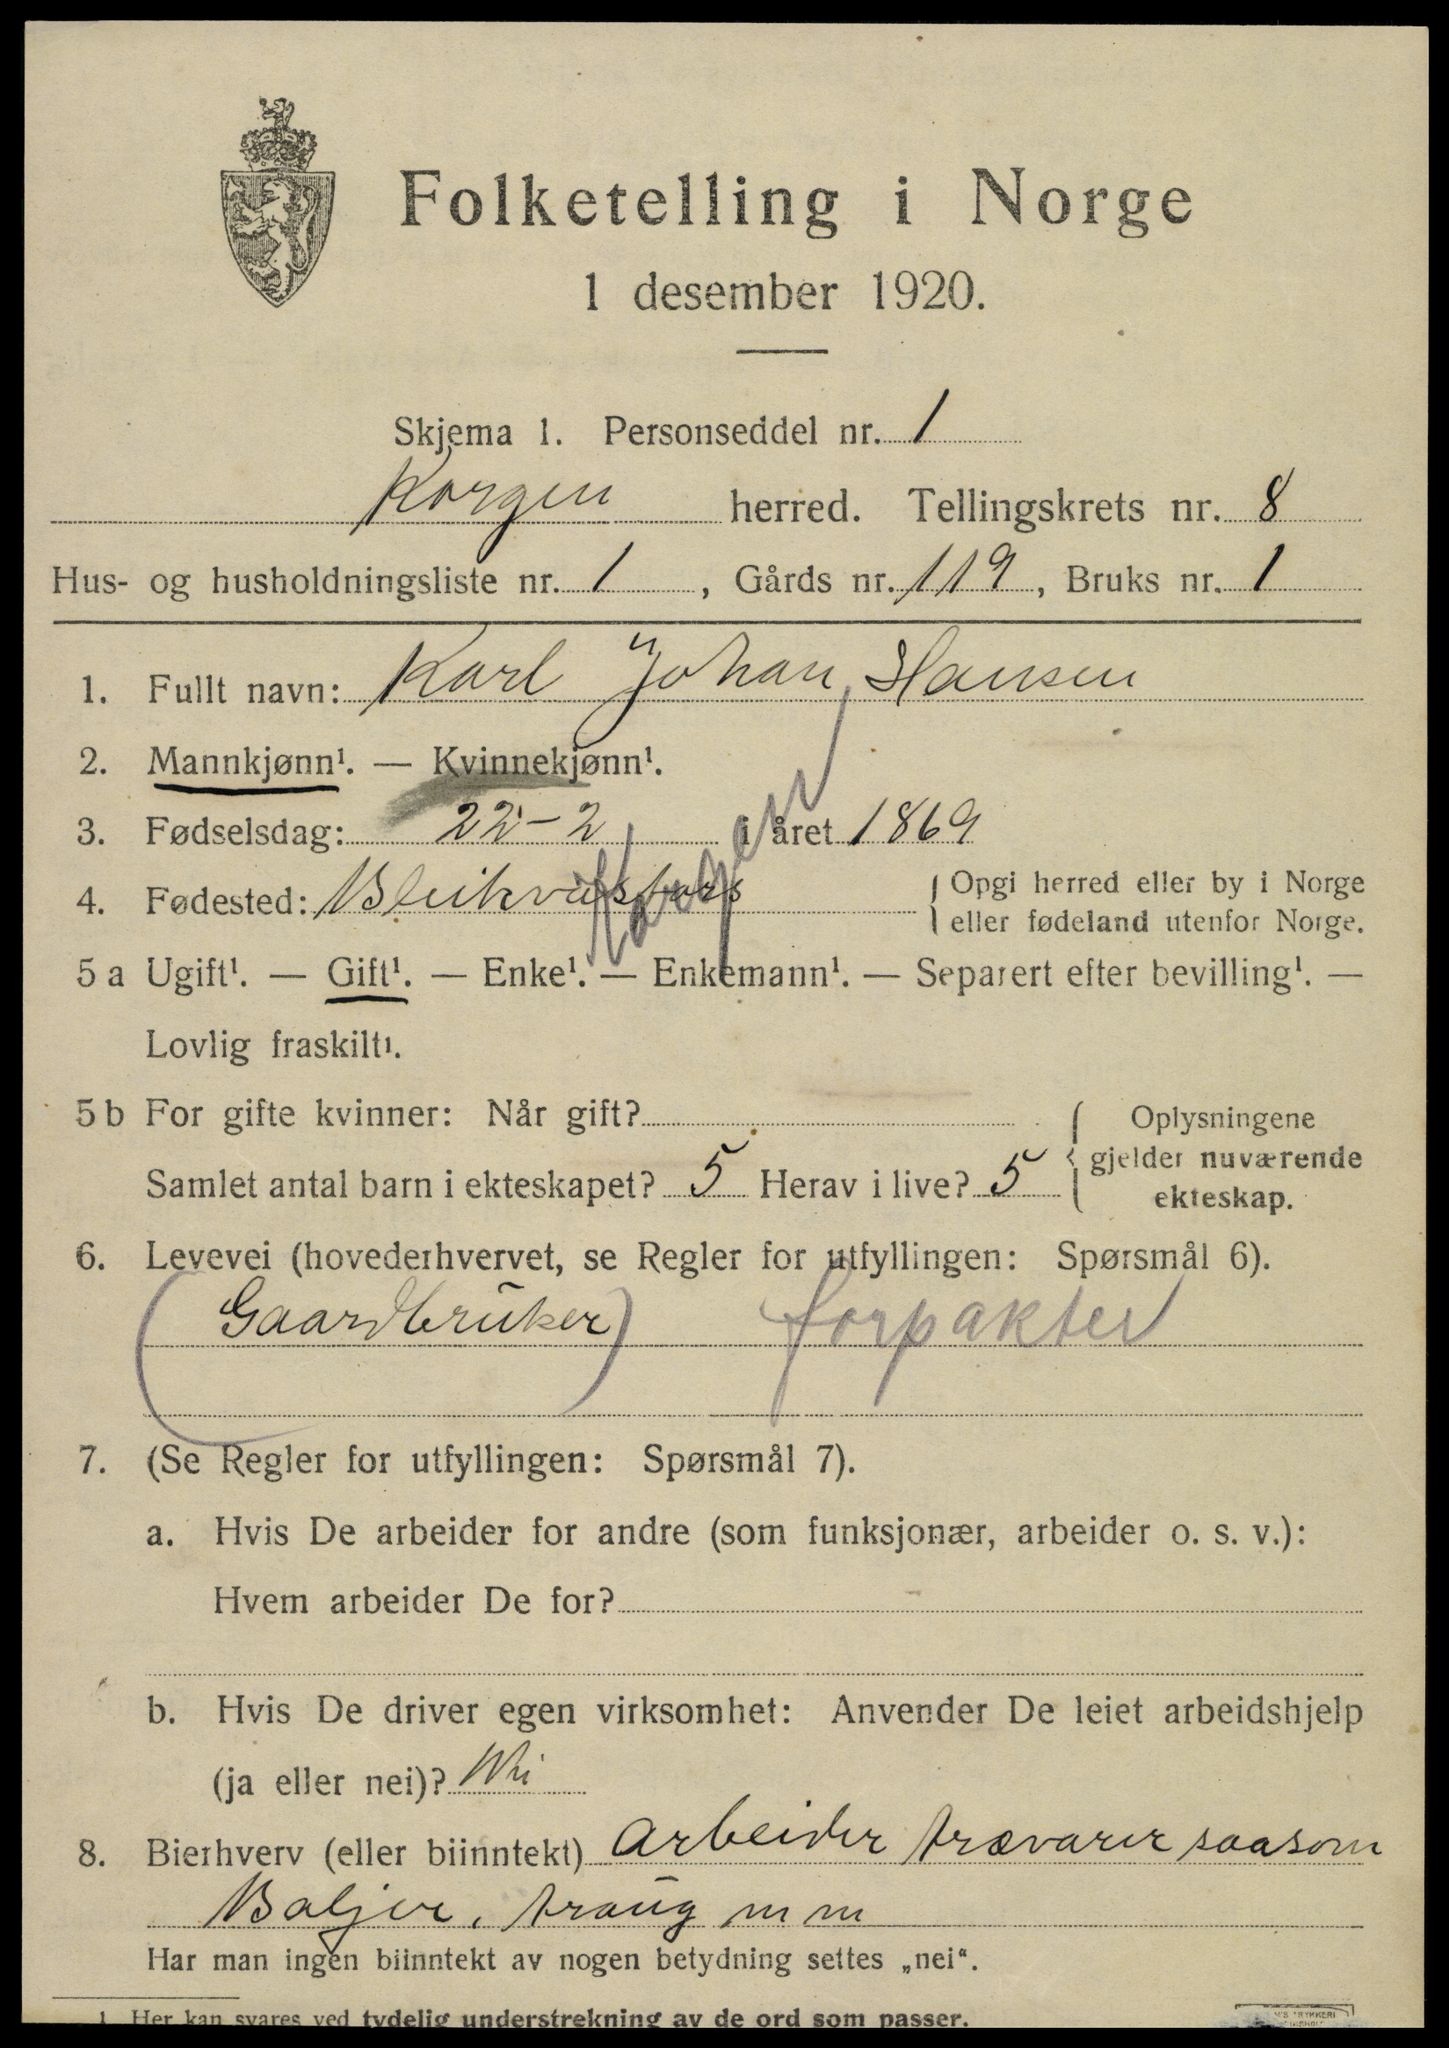 Folketelling i Norge
1 desember 1920.
Skjema 1. Personseddel nr. 1
Korgen herred. Tellingskrets nr. 8
Hus- og husholdningsliste nr. 1, Gårds nr. 119, Bruks nr. 1
1. Fullt navn: Karl Johan Hansen
2. Mannkjønn¹. — Kvinnekjønn¹.
3. Fødselsdag: 22-2 i året 1869
4. Fødested: Korgen { Opgi herred eller by i Norge
eller fødeland utenfor Norge.
5 a Ugift¹. — Gift¹. — Enke¹. — Enkemann¹. — Separert efter bevilling¹. —
Lovlig fraskilt¹.
5 b For gifte kvinner: Når gift? { Oplysningene
gjelder nuværende
Samlet antal barn i ekteskapet? 5 Herav i live? 5
ekteskap.
6. Levevei (hovederhvervet, se Regler for utfyllingen: Spørsmål 6).
(Gaardbruker) forpakter
7. (Se Regler for utfyllingen: Spørsmål 7).
a. Hvis De arbeider for andre (som funksjonær, arbeider o. s. v.):
Hvem arbeider De for?
b. Hvis De driver egen virksomhet: Anvender De leiet arbeidshjelp
(ja eller nei)? Nei
8. Bierhverv (eller biinntekt) Arbeider trævarer saasom
Baljer, traug m m
Har man ingen biinntekt av nogen betydning settes „nei“.
1 Her kan svares ved tydelig understrekning av de ord som passer.